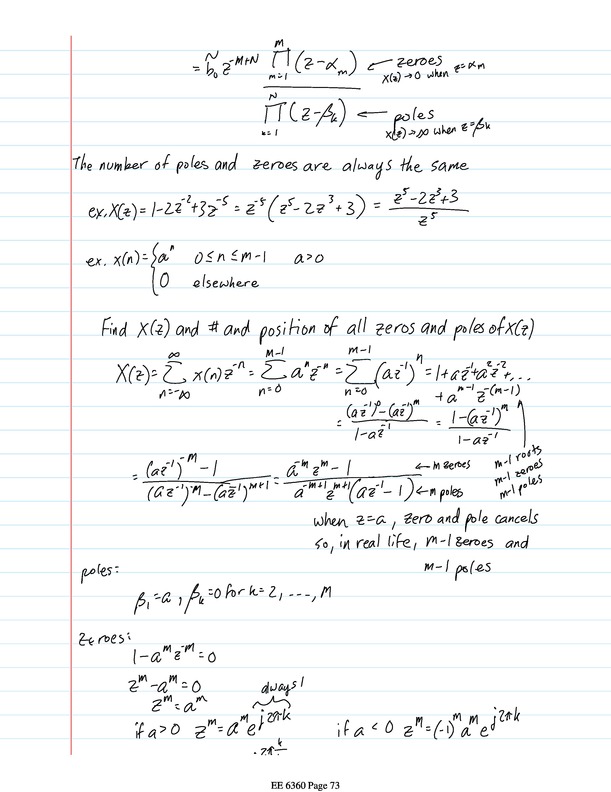 = b̃₀ z^{-M+N} ∏_{m=1}^{M} (z-α_m) ← zeroes X(z)→0 when z=α_m
∏_{k=1}^{N} (z-β_k) ← poles X(z)→∞ when z=β_k
The number of poles and zeroes are always the same
ex. X(z) = 1-2z^{-2}+3z^{-5} = z^{-5}(z^5-2z^3+3) = (z^5-2z^3+3)/z^5
ex. x(n) = { a^n 0≤n≤m-1 a>0
0 elsewhere
Find X(z) and # and position of all zeros and poles of X(z)
X(z) = ∑_{n=-∞}^{∞} x(n)z^{-n} = ∑_{n=0}^{M-1} a^n z^{-n} = ∑_{n=0}^{M-1} (az^{-1})^n = 1+az^{-1}+a^2z^{-2}+...
+ a^{m-1} z^{-(m-1)}
= ((az^{-1})^0-(az^{-1})^m)/(1-az^{-1}) = (1-(az^{-1})^m)/(1-az^{-1})
m-1 roots
m-1 zeroes
m-1 poles
= ((az^{-1})^{-M}-1)/((az^{-1})^{-M}-(az^{-1})^{-M+1}) = (a^{-m}z^m-1)/(a^{-m+1}z^{m+1}(az^{-1}-1)) ← m zeroes ← m poles
when z=a, zero and pole cancels
so, in real life, m-1 zeroes and
m-1 poles
poles:
β₁=a, β_k=0 for k=2, ----, M
Zeroes:
1-a^m z^{-m}=0
z^m-a^m=0
z^m=a^m
always 1
if a>0 z^m=a^m e^{j2πk} if a<0 z^m=(-1)^m a^m e^{j2πk}
EE 6360 Page 73